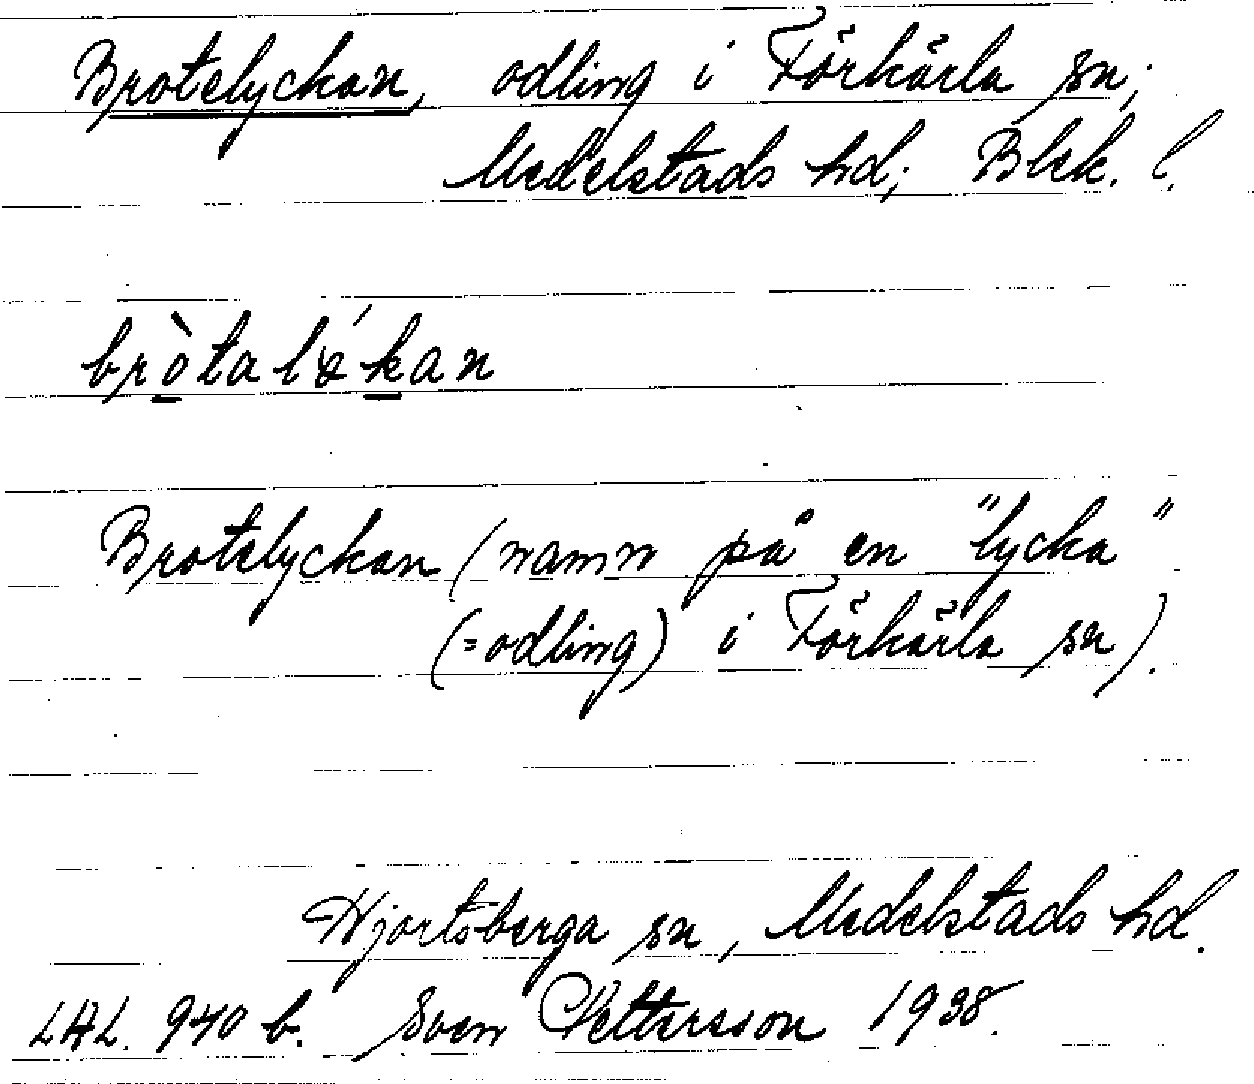 Brotelyckan, odling i Förkärla sn;
Medelstads hd; Blek. l.
bròtaløkan
Brotelyckan (namn på en "lycka"
(=odling) i Förkärla sn).
Hjortsberga sn, Medelstads hd.
LAL. 940 b. Sven Pettersson 1938.